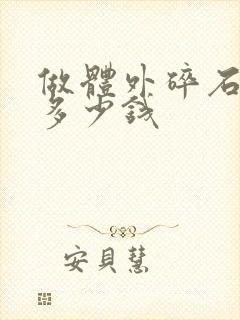 做體外碎石
多少錢
安貝慧